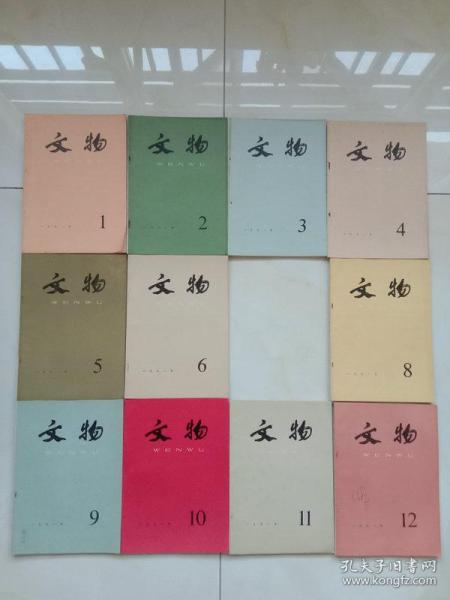 文物
1
文物
WENWU
2
文物
3
文物
4
文物
WENWU
5
文物
6
文物
8
文物
WENWU
9
文物
WENWU
10
文物
11
文物
WENWU
12
孔夫子旧书网
www.kongfz.com